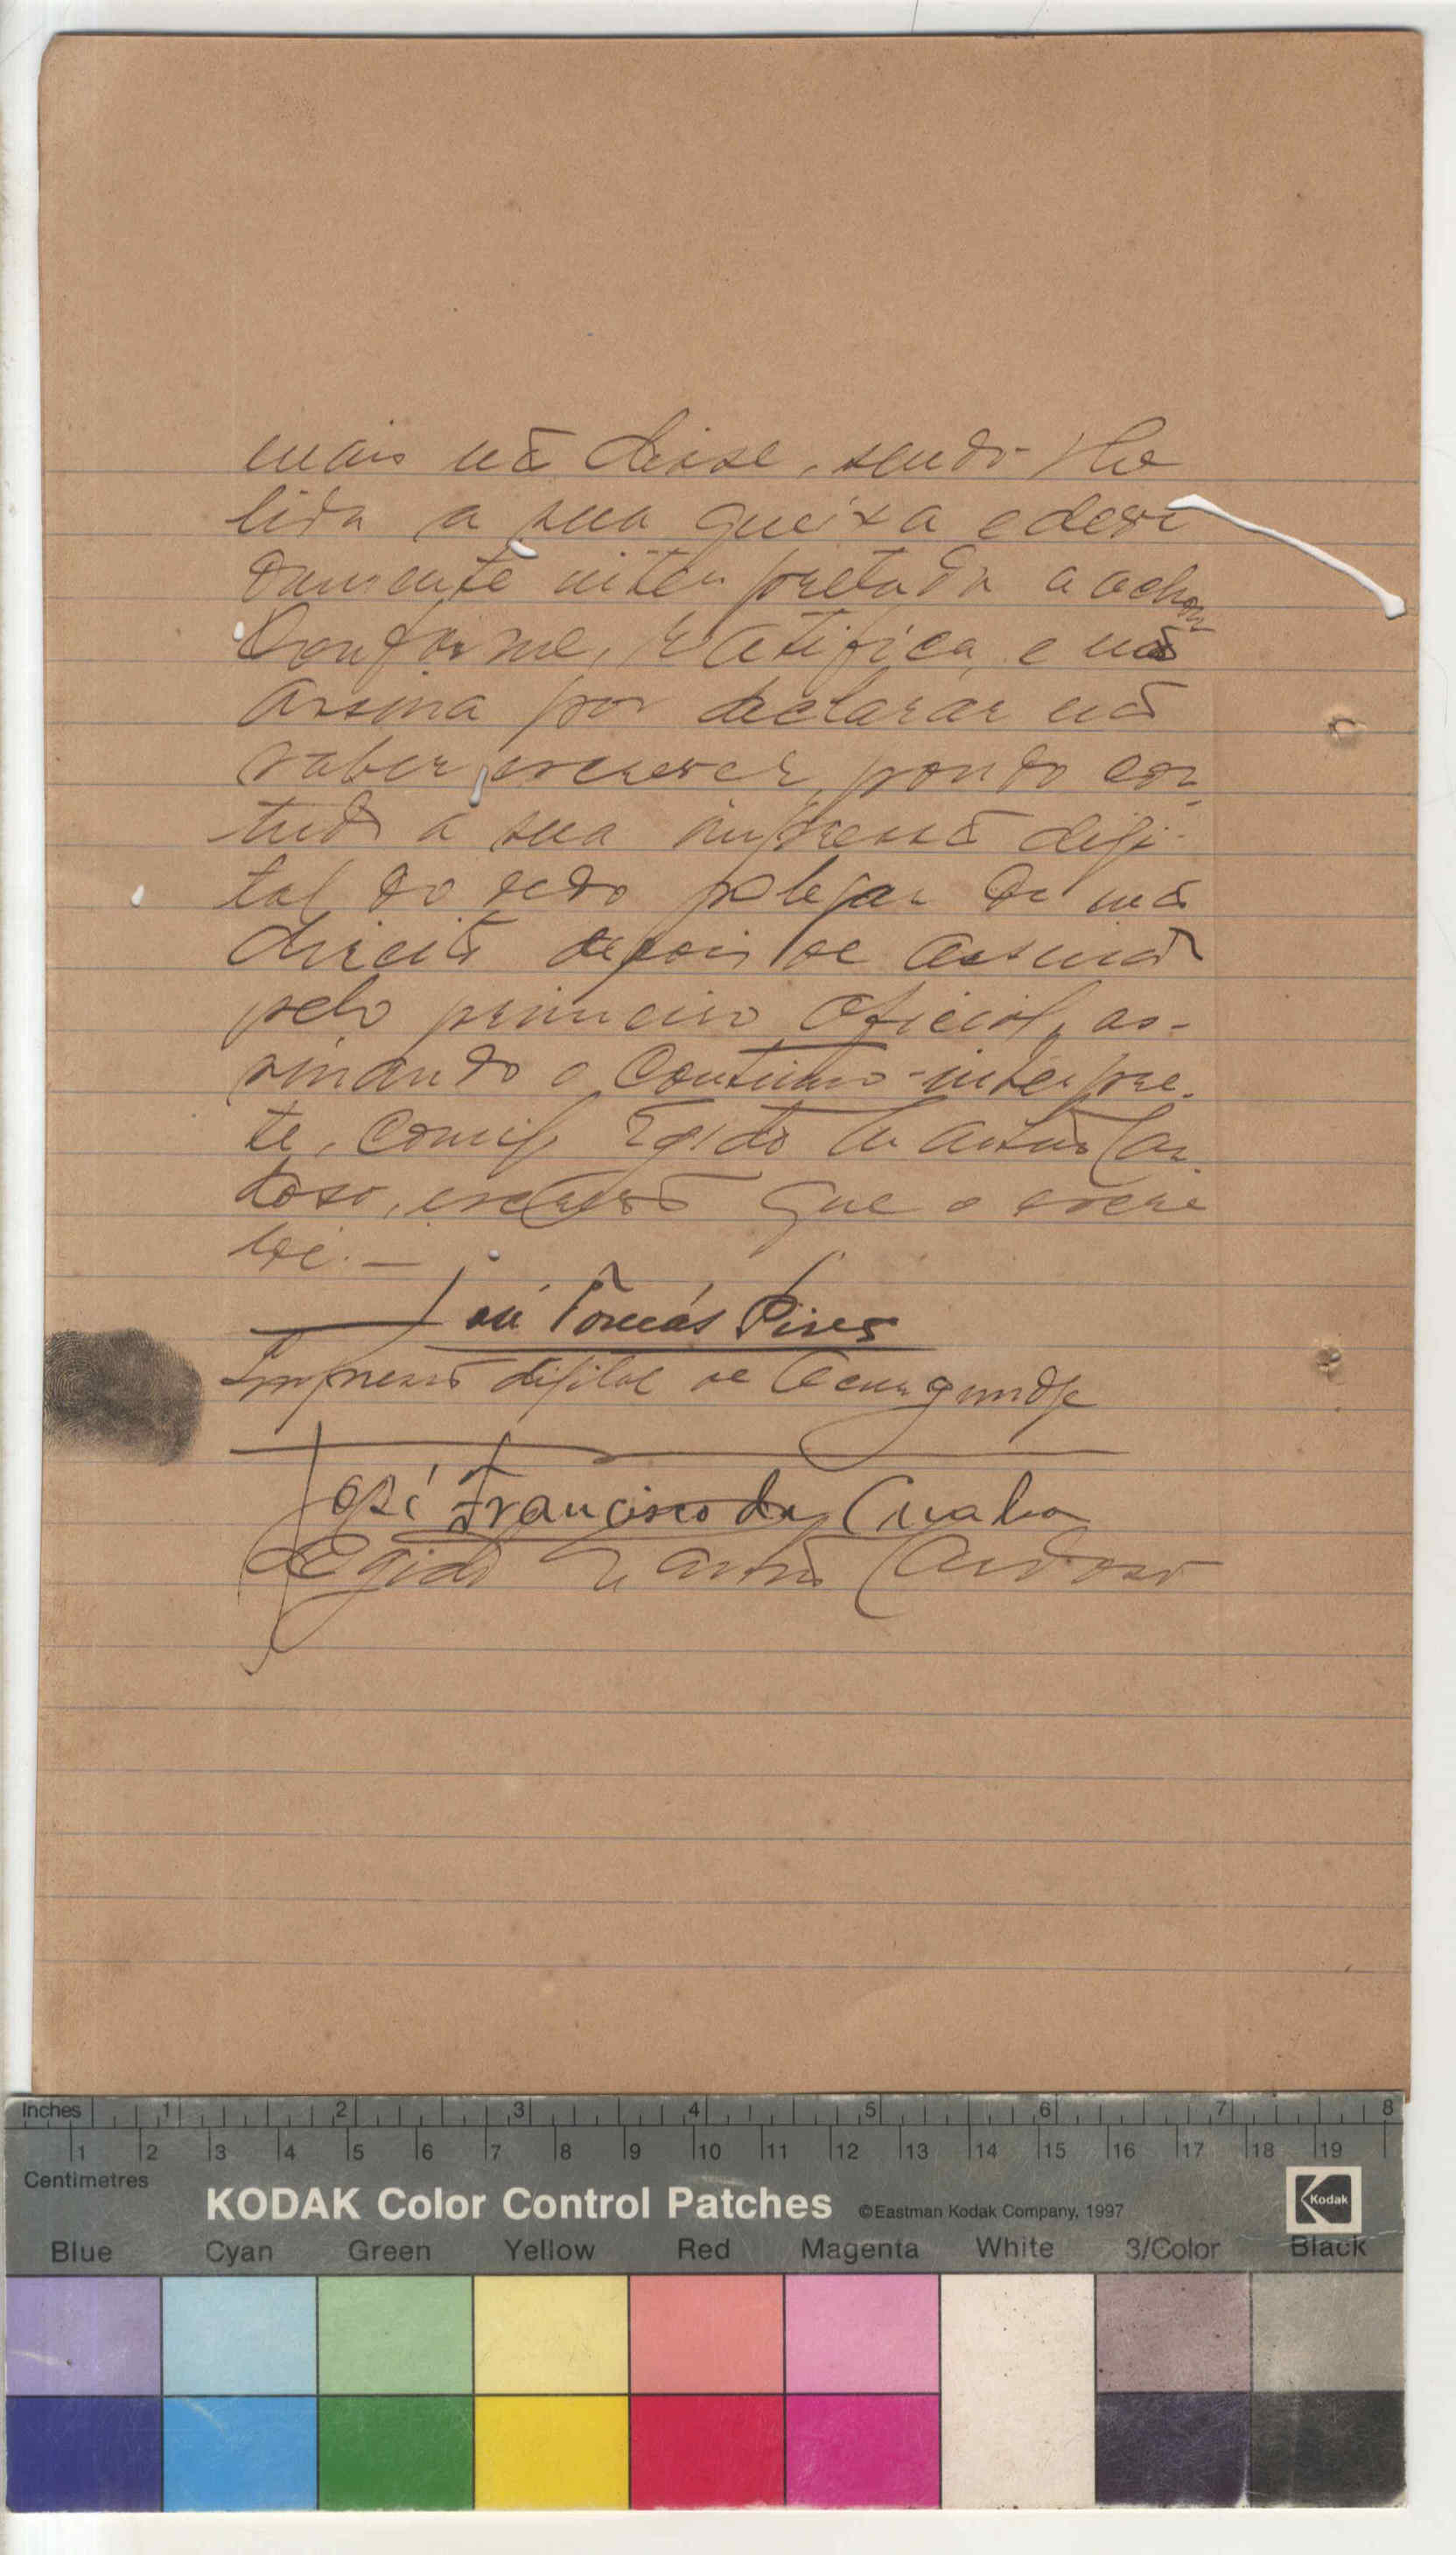 mais não disse, sendo-lhe
lida a sua queixa e devi
damente interpretada a achou
conforme, ratifica, e não
assina por declarar não
saber escrever, pondo con-
tudo a sua impressão digi-
tal do dedo polegar da mão
direita depois de assinado
pelo primeiro oficial, as-
sinando o contínuo-interpre-
te, comigo Egídio Car-
doso, escrivão que o escre
vi. —
José Tomás Pires
Impressão digital de
José Francisco da Cunha
Egídio Cardoso
Inches 1 2 3 4 5 6 7 8
1 2 3 4 5 6 7 8 9 10 11 12 13 14 15 16 17 18 19
Centimetres
KODAK Color Control Patches ©Eastman Kodak Company, 1997 Kodak
Blue Cyan Green Yellow Red Magenta White 3/Color Black